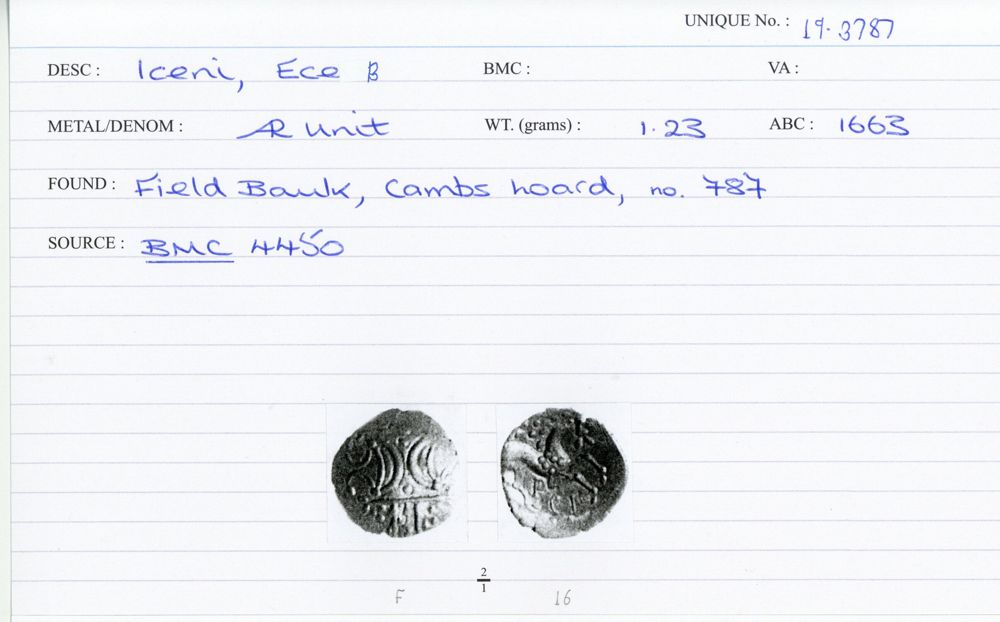 UNIQUE No. : 19.3787
DESC : Iceni, Ece B BMC : VA :
METAL/DENOM : AR Unit WT. (grams) : 1.23 ABC : 1663
FOUND : Field Bank, Cambs hoard, no. 787
SOURCE : BMC 4450
2
1
F 16